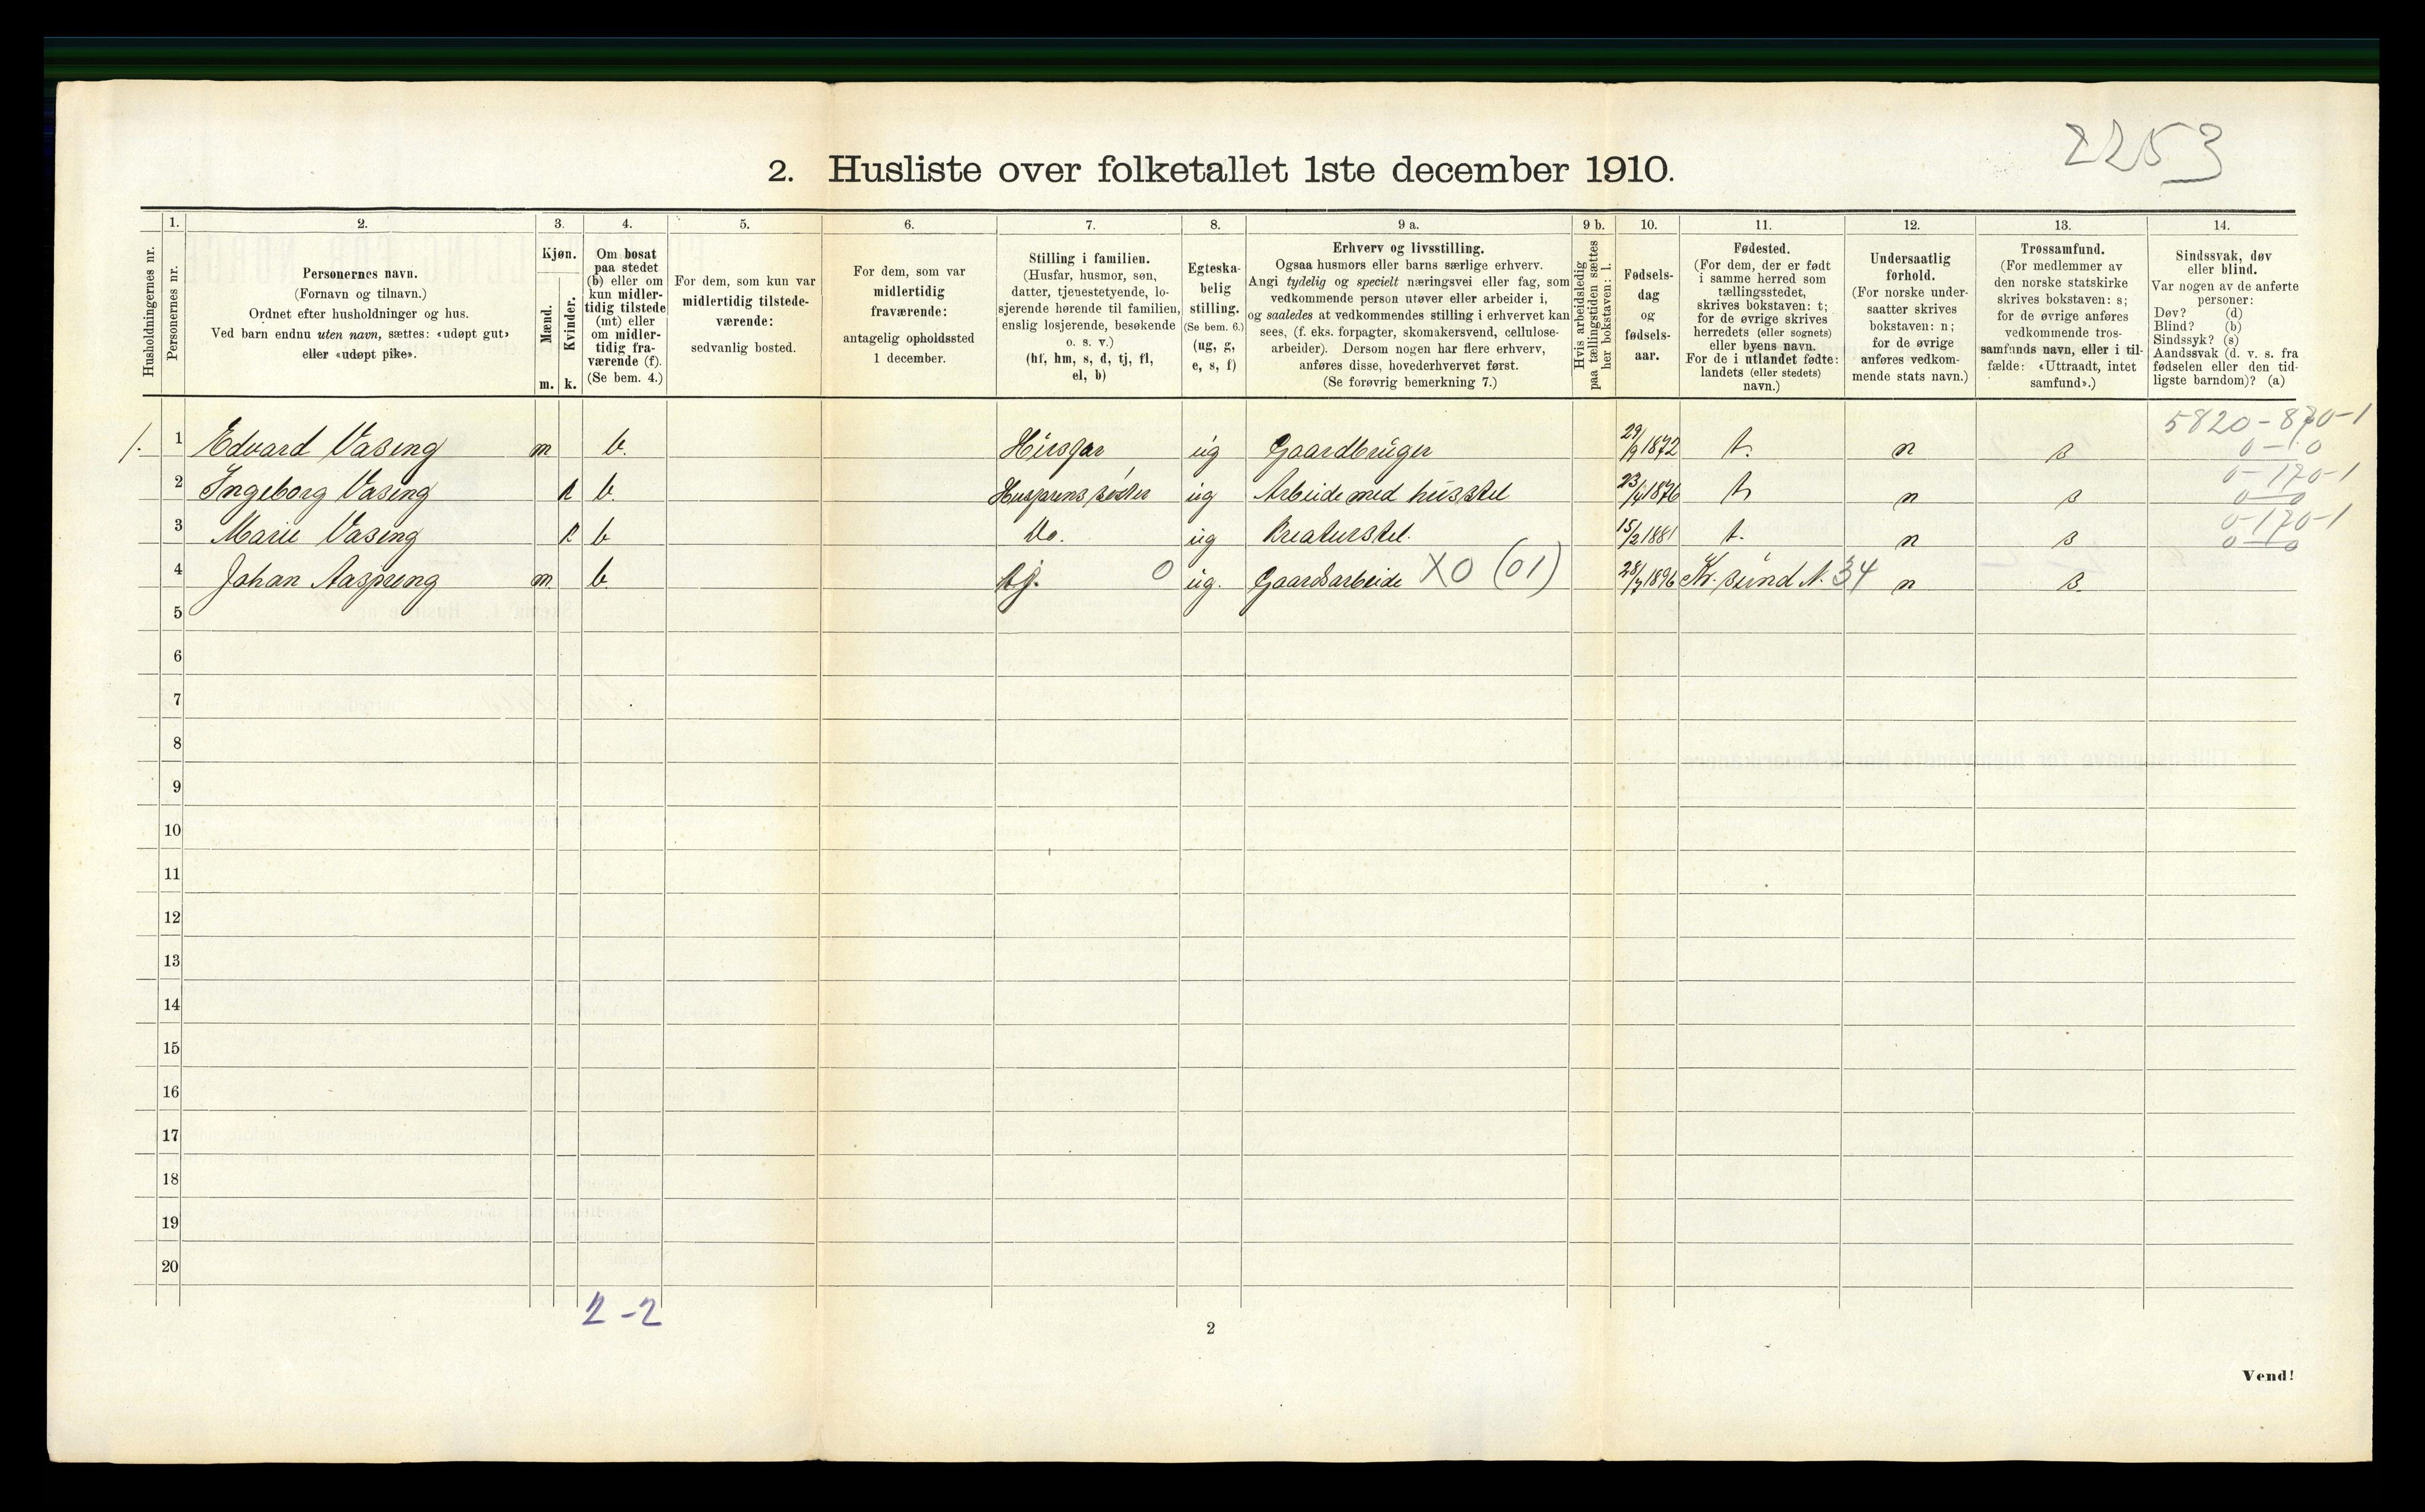 2253
2. Husliste over folketallet 1ste december 1910.
Husholdningernes nr.
1. Personernes nr.
2. Personernes navn. (Fornavn og tilnavn.) Ordnet efter husholdninger og hus. Ved barn endnu uten navn, sættes: «udøpt gut» eller «udøpt pike».
3. Kjøn. Mænd. m. Kvinder. k.
4. Om bosat paa stedet (b) eller om kun midlertidig tilstede (mt) eller om midlertidig fraværende (f). (Se bem. 4.)
5. For dem, som kun var midlertidig tilstedeværende: sedvanlig bosted.
6. For dem, som var midlertidig fraværende: antagelig opholdssted 1 december.
7. Stilling i familien. (Husfar, husmor, søn, datter, tjenestetyende, losjerende hørende til familien, enslig losjerende, besøkende o. s. v.) (hf, hm, s, d, tj, fl, el, b)
8. Egteskabelig stilling. (Se bem. 6.) (ug, g, e, s, f)
9 a. Erhverv og livsstilling. Ogsaa husmors eller barns særlige erhverv. Angi tydelig og specielt næringsvei eller fag, som vedkommende person utøver eller arbeider i, og saaledes at vedkommendes stilling i erhvervet kan sees, (f. eks. forpagter, skomakersvend, cellulosearbeider). Dersom nogen har flere erhverv, anføres disse, hovederhvervet først. (Se forøvrig bemerkning 7.)
9 b. Hvis arbeidsledig paa tællingstiden sættes her bokstaven: l.
10. Fødselsdag og fødselsaar.
11. Fødested. (For dem, der er født i samme herred som tællingsstedet, skrives bokstaven: t; for de øvrige skrives herredets (eller sognets) eller byens navn. For de i utlandet fødte: landets (eller stedets) navn.)
12. Undersaatlig forhold. (For norske undersaatter skrives bokstaven: n; for de øvrige anføres vedkommende stats navn.)
13. Trossamfund. (For medlemmer av den norske statskirke skrives bokstaven: s; for de øvrige anføres vedkommende trossamfunds navn, eller i tilfælde: «Uttraadt, intet samfund».)
14. Sindssvak, døv eller blind. Var nogen av de anførte personer: Døv? (d) Blind? (b) Sindssyk? (s) Aandssvak (d. v. s. fra fødselen eller den tidligste barndom)? (a)
5820-870-1
1. 1 Edvard Vaseng m b. Husfar ug Gaardbruger 29/9 1872 t. n s 0-10
0-170-1
2 Ingeborg Vaseng k b. Husfarens søster ug Arbeide med husstel 23/4 1876 t n s 0-0
0-170-1
3 Marie Vaseng k b Do. ug Kreaturstel. 15/2 1881 t. n s 0-10
4 Johan Aaspreng m. b. tj. 0 ug. Gaardsarbeide X0 (01) 28/7 1896 Kr. sund N. 34 n s.
5
6
7
8
9
10
11
12
13
14
15
16
17
18
19
20
2-2
2
Vend!